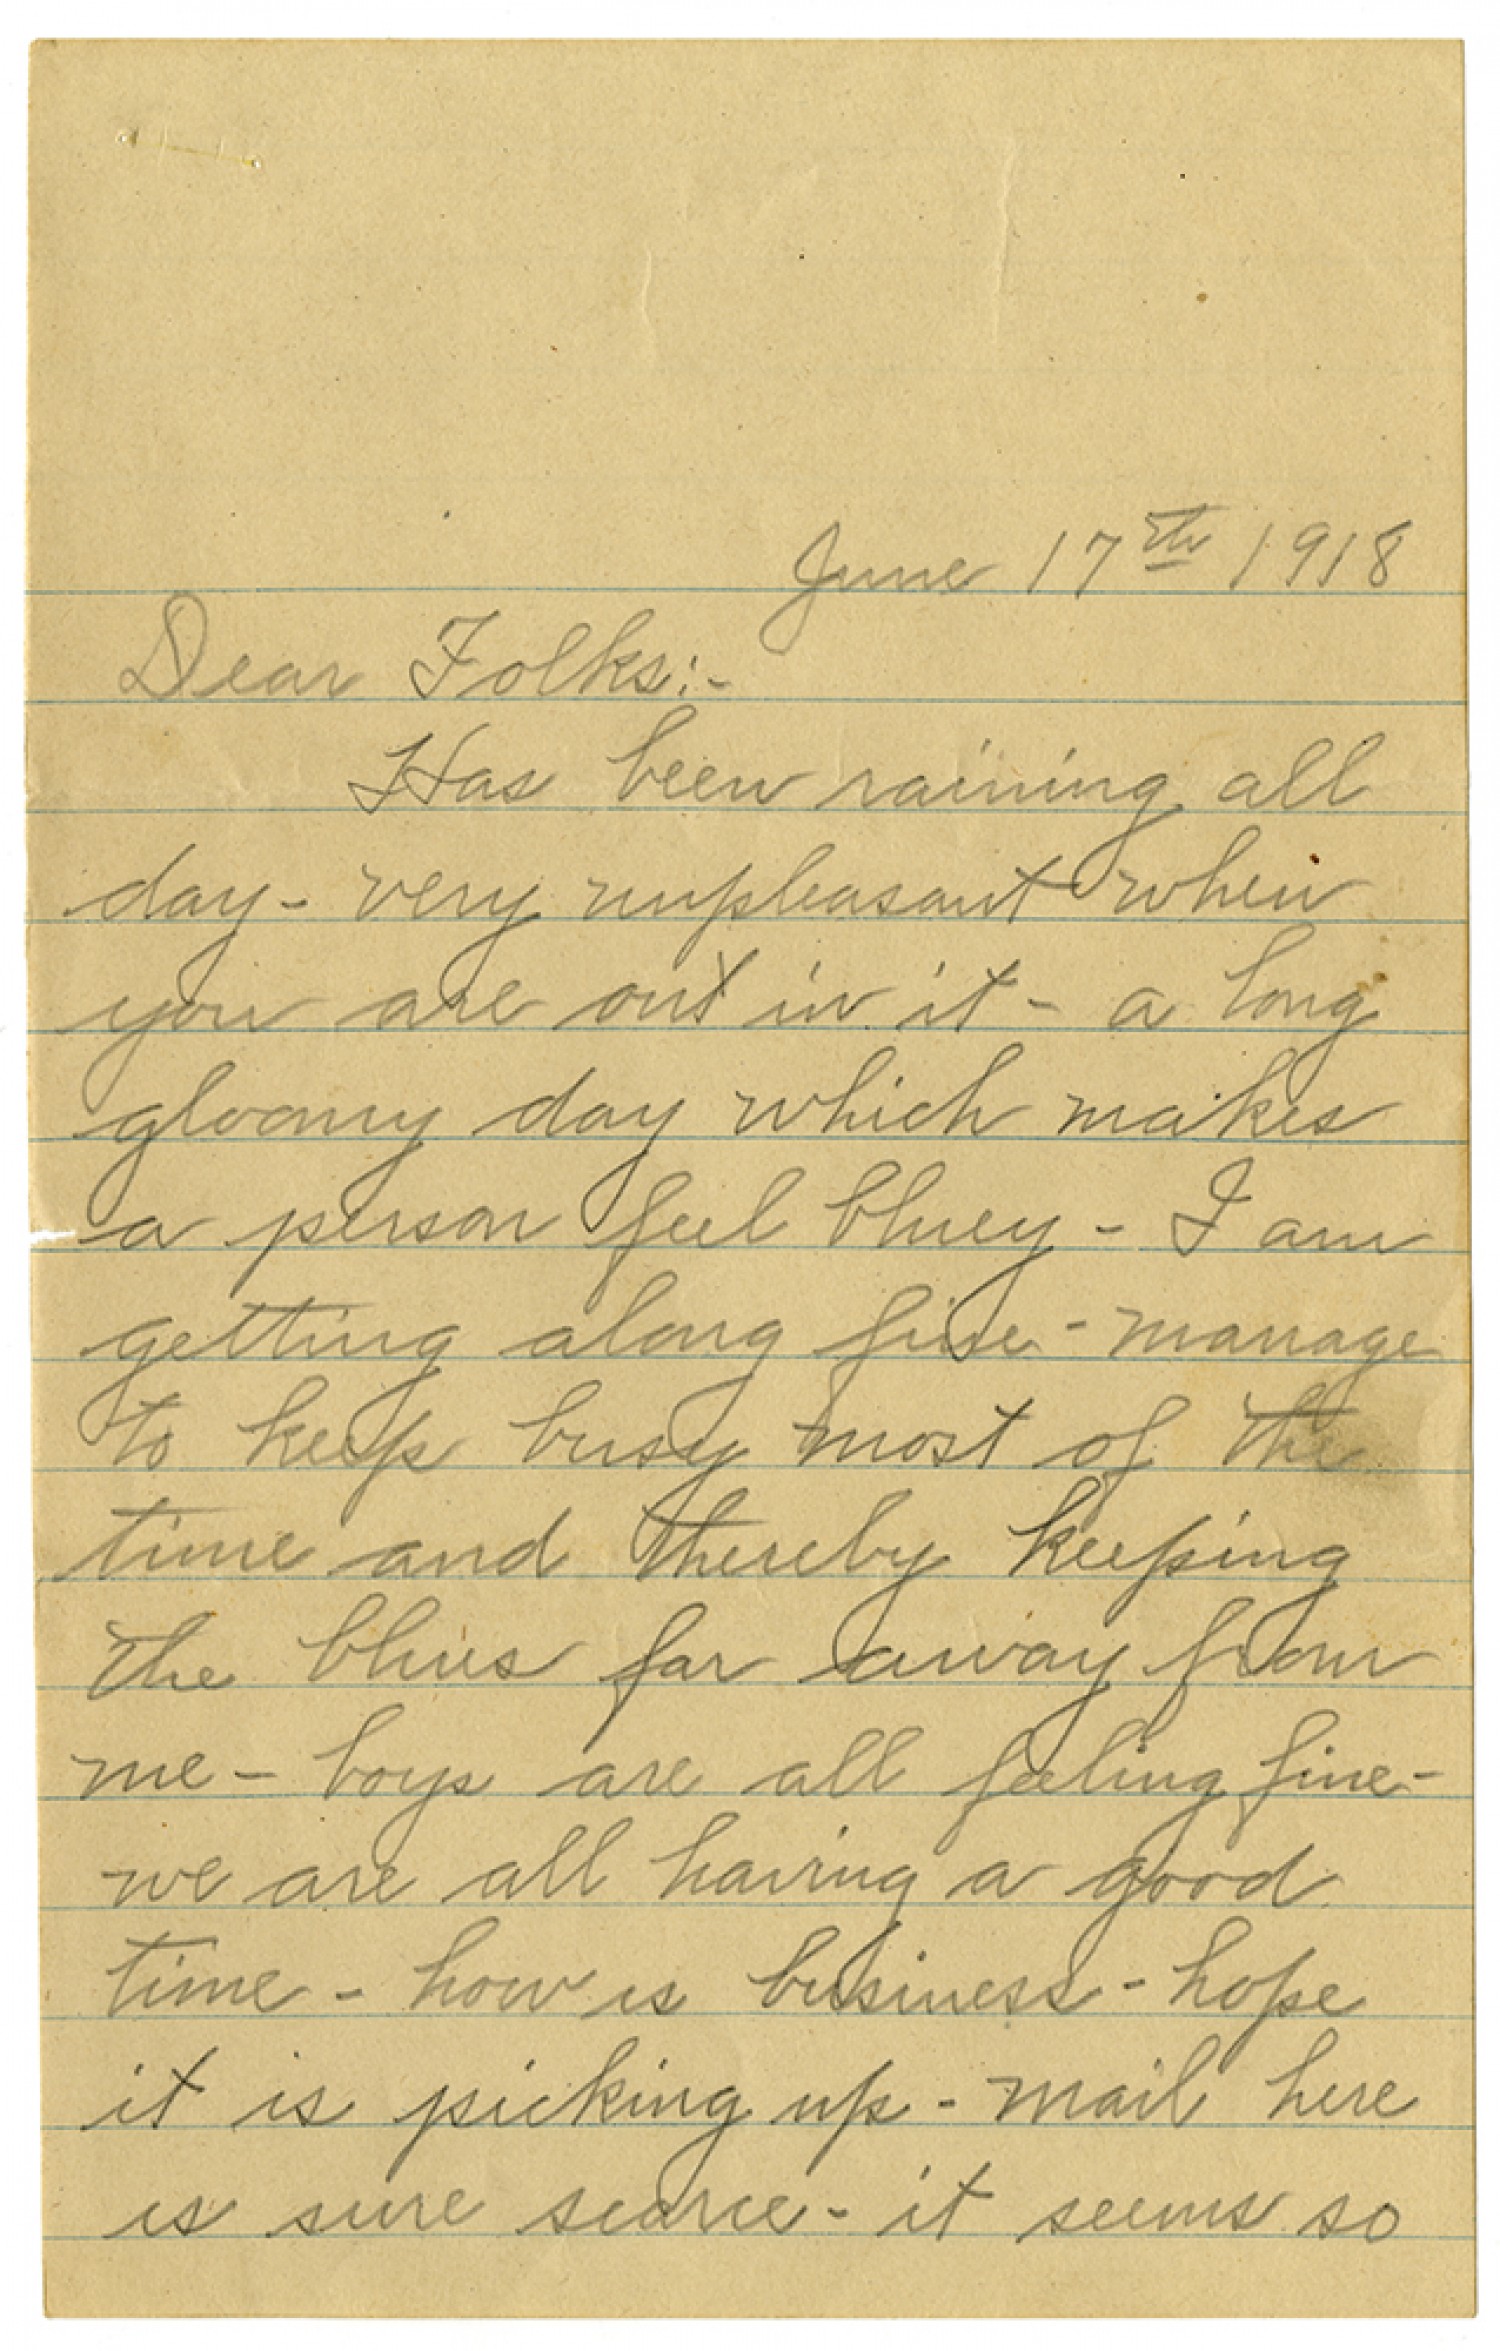 June 17th 1918
Dear Folks:-
Has been raining all
day - very unpleasant when
you are out in it - a long
gloomy day which makes
a person feel bluey - I am
getting along fine - manage
to keep busy most of the
time and thereby keeping
the blues far away from
me - boys are all feeling fine -
we are all having a good
time - how is business - hope
it is picking up - mail here
is sure scarce - it seems so